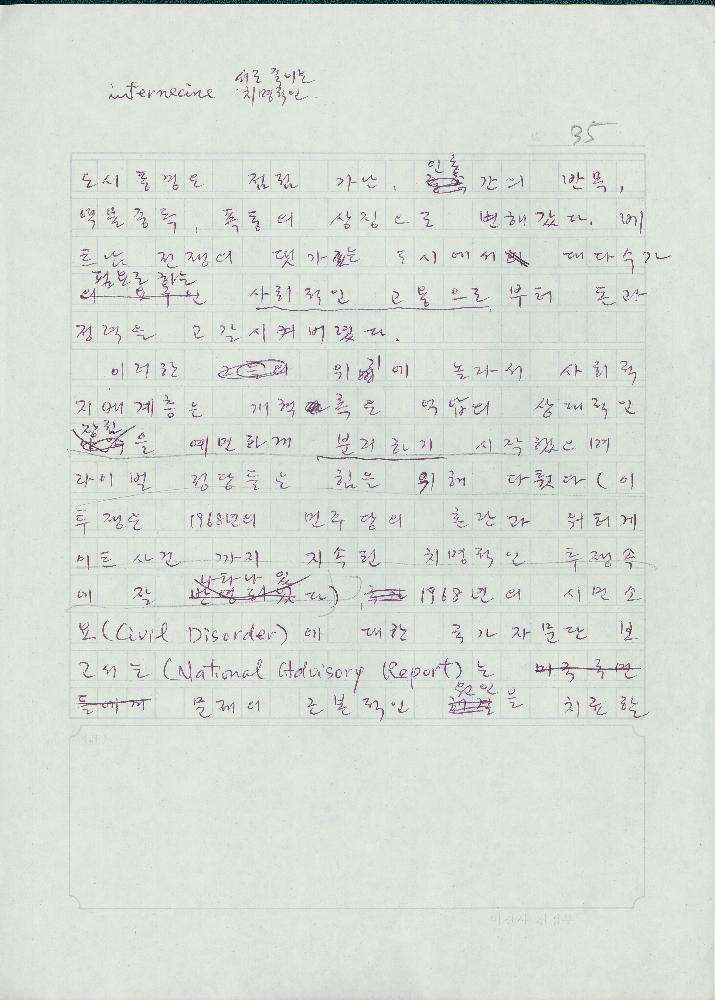 internecine 서로 죽이는
치명적인
35
도시 풍경은 점점 가난, 인종 간의 반목,
약물중독, 폭동의 상징으로 변해갔다. 베
트남 전쟁의 댓가는 도시에서 대다수가
필요로 하는
의 요구인 사회적인 고통으로부터 돈과
정력을 고갈시켜 버렸다.
이러한 위기에 놀라서 사회적
지배계층은 개혁 혹은 억압의 상대적인
장점
을 예민하게 분리하기 시작했으며
라이벌 정당들은 힘을 위해 다퉜다(이
투쟁은 1968년의 민주당의 혼란과 워터게
이트 사건 까지 지속된 치명적인 투쟁속
나타나 있
에 잘 반영되었다), 1968년의 시민소
요(Civil Disorder)에 대한 국가자문단 보
고서는 (National Advisory Report)는 미국 국민
원인
들에게 문제의 근본적인 을 치료할